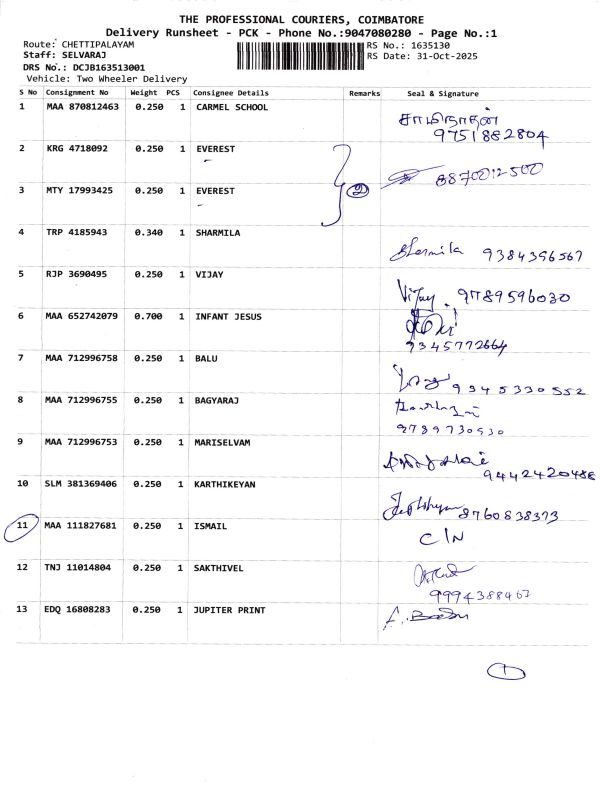 THE PROFESSIONAL COURIERS, COIMBATORE
Delivery Runsheet - PCK - Phone No.:9047080280 - Page No.:1
Route: CHETTIPALAYAM RS No.: 1635130
Staff: SELVARAJ RS Date: 31-Oct-2025
DRS No.: DCJB163513001
Vehicle: Two Wheeler Delivery
S No Consignment No Weight PCS Consignee Details Remarks Seal & Signature
1 MAA 870812463 0.250 1 CARMEL SCHOOL சாமிநாதன்
9751882804
2 KRG 4718092 0.250 1 EVEREST
② 8870012500
3 MTY 17993425 0.250 1 EVEREST
4 TRP 4185943 0.340 1 SHARMILA
Sharmila 9384396567
5 RJP 3690495 0.250 1 VIJAY
Vijay. 9789596030
6 MAA 652742079 0.700 1 INFANT JESUS
9345772664
7 MAA 712996758 0.250 1 BALU
9345330552
8 MAA 712996755 0.250 1 BAGYARAJ
9789730930
9 MAA 712996753 0.250 1 MARISELVAM
9442420488
10 SLM 381369406 0.250 1 KARTHIKEYAN
8760838373
11 MAA 111827681 0.250 1 ISMAIL C/N
12 TNJ 11014804 0.250 1 SAKTHIVEL
9994388467
13 EDQ 16808283 0.250 1 JUPITER PRINT
1